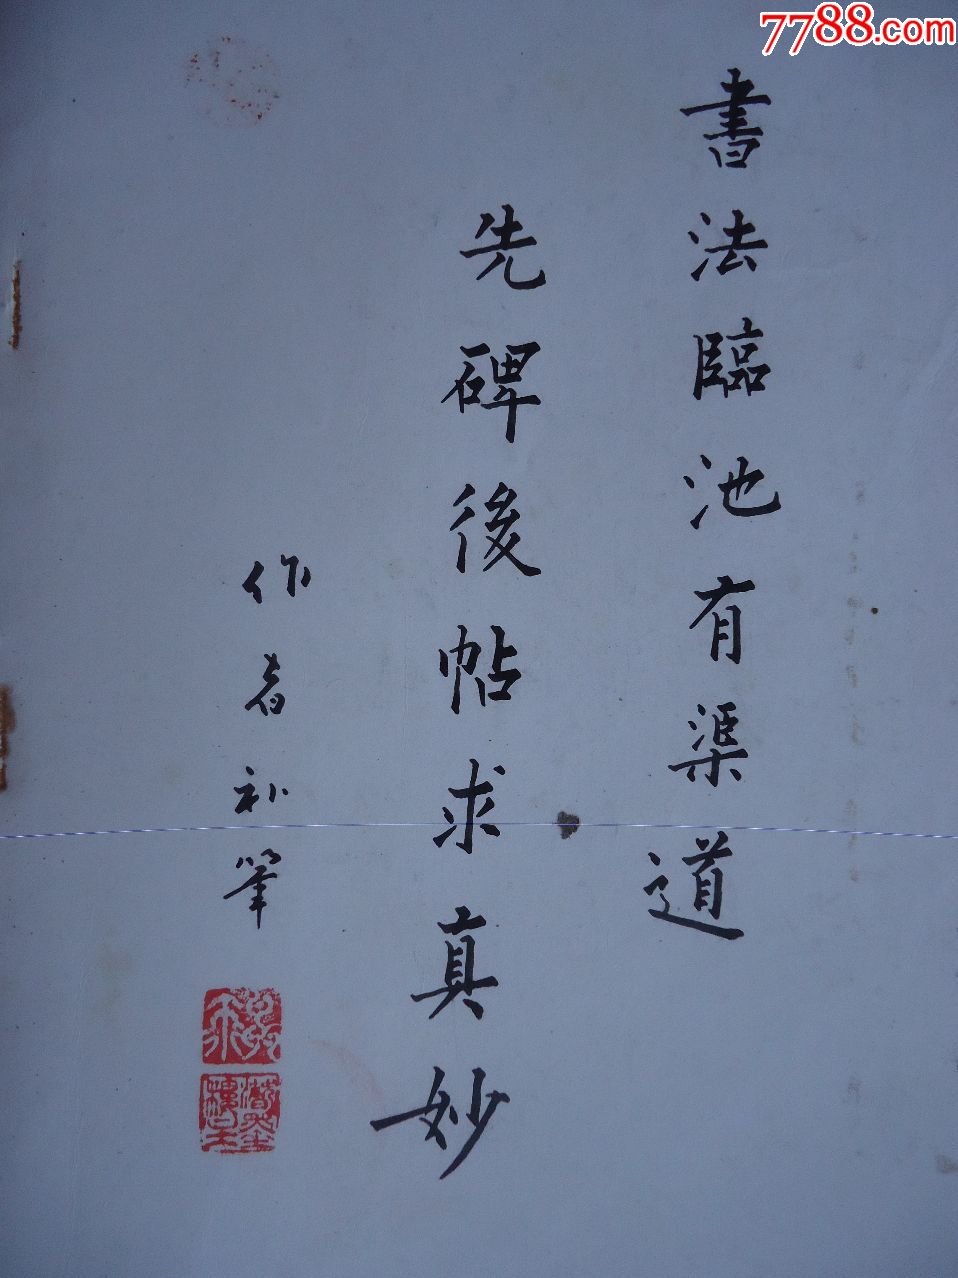 7788.com
書法臨池有渠道
先碑後帖求真妙
作者补筆